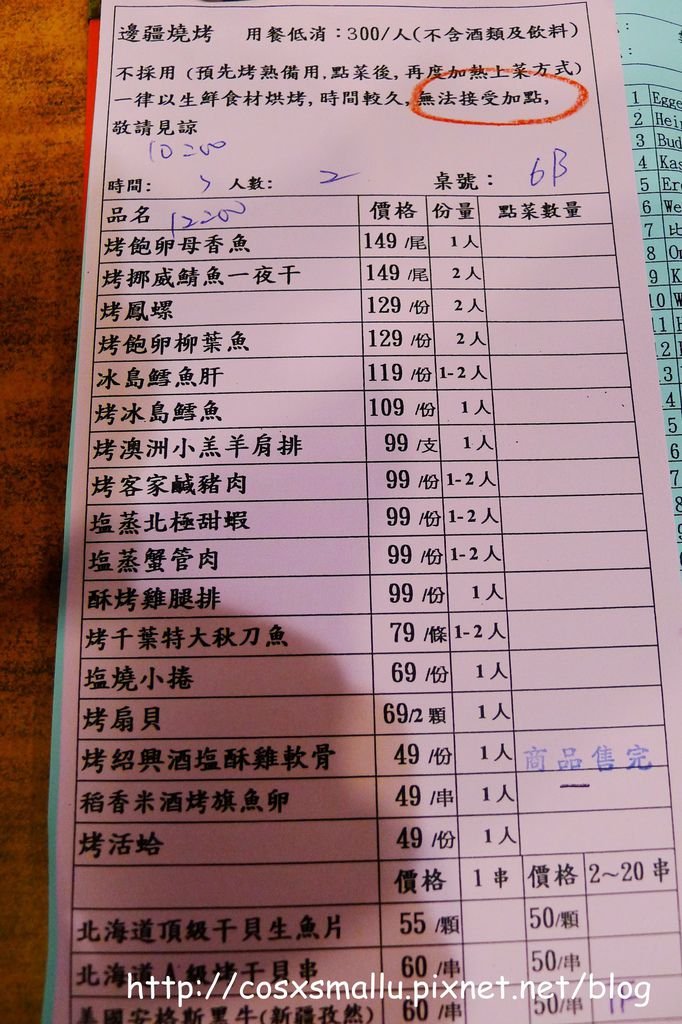 邊疆燒烤 用餐低消：300/人(不含酒類及飲料)
不採用 (預先烤熟備用,點菜後,再度加熱上菜方式)
一律以生鮮食材烘烤,時間較久,無法接受加點,
敬請見諒
10=00
時間: 人數: 2 桌號： 6B
品名 12=00 價格 份量 點菜數量
烤飽卵母香魚 149 /尾 1 人
烤挪威鯖魚一夜干 149 /尾 2 人
烤鳳螺 129 /份 2 人
烤飽卵柳葉魚 129 /份 2 人
冰島鱈魚肝 119 /份 1-2 人
烤冰島鱈魚 109 /份 1 人
烤澳洲小羔羊肩排 99 /支 1 人
烤客家鹹豬肉 99 /份 1-2 人
塩蒸北極甜蝦 99 /份 1-2 人
塩蒸蟹管肉 99 /份 1-2 人
酥烤雞腿排 99 /份 1 人
烤千葉特大秋刀魚 79 /條 1-2 人
塩燒小捲 69 /份 1 人
烤扇貝 69/2 顆 1 人
烤紹興酒塩酥雞軟骨 49 /份 1 人 商品售完
稻香米酒烤旗魚卵 49 /串 1 人
烤活蛤 49 /份 1 人
價格 1 串 價格 2～20 串
北海道頂級干貝生魚片 55 /顆 50/顆
北海道人級烤干貝串 60 /串 50/串
美國安格斯黑牛(新疆孜然) 60 /串 50/串
http://cosxsmallu.pixnet.net/blog
1 Egge
2 Hei
3 Bud
4 Kas
5 Er
6 We
7 比
8 O
9 K